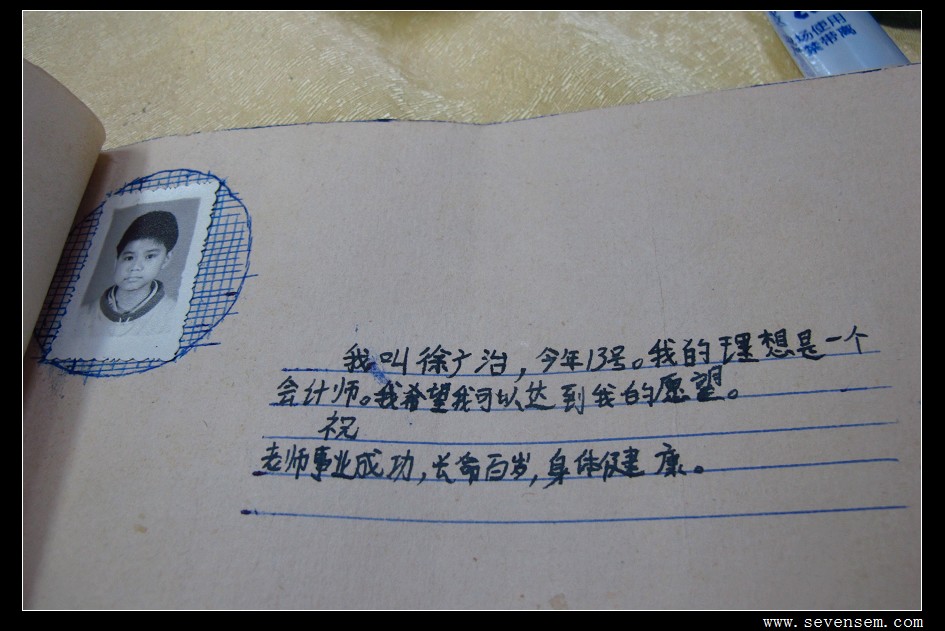 场使用
禁带离
我叫徐广治，今年13号。我的理想是一个
会计师。我希望我可以达到我的愿望。
祝
老师事业成功，长命百岁，身体健康。
www.sevensem.com